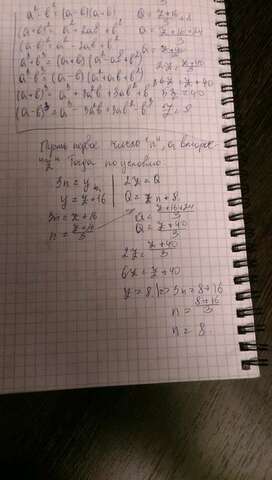 a² - b² = (a-b)(a+b)
(a+b)² = a² + 2ab + b²
(a-b)² = a² - 2ab + b²
a³ + b³ = (a+b)(a² - ab + b²)
a³ - b³ = (a-b)(a² + ab + b²)
(a+b)³ = a³ + 3a²b + 3ab² + b³
(a-b)³ = a³ - 3a²b + 3ab² - b³
6z = z + 40
5z = 40
z = 8
Пусть первое число "n", а второе
"z" тогда по условию
3n = y
y = z + 16
3n = z + 16
n = z+16/3
2z = Q
Q = n + 8
Q = z+16+24/3
Q = z+40/3
2z = z+40/3
6z = z + 40
z = 8 => 3n = 8 + 16
n = 8+16/3
n = 8